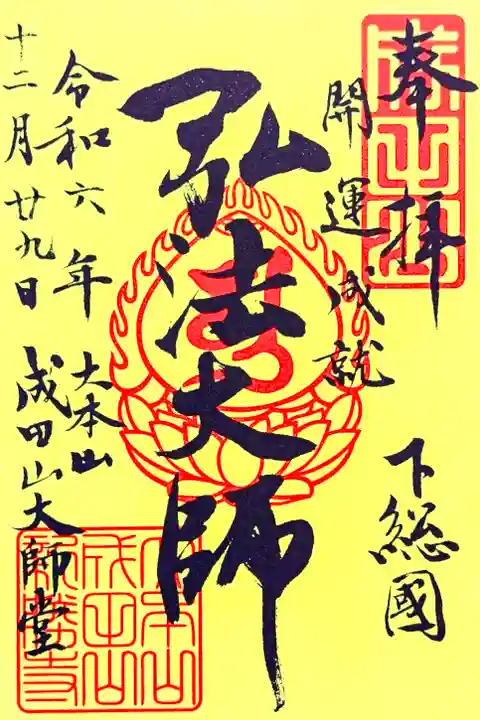 奉拝
開運成就
下総國
弘法大師
令和六年
十二月廿九日
大本山
成田山大師堂
成田山
大本山
成田山
新勝寺